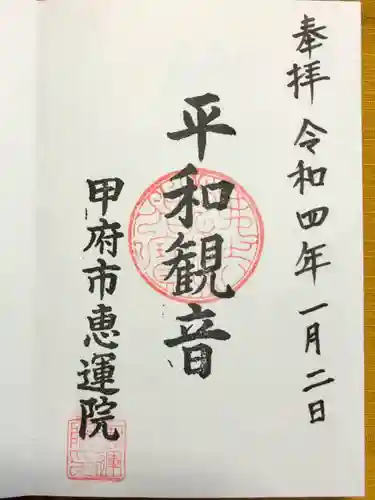 奉拝 令和四年一月二日
平和観音
甲府市恵運院